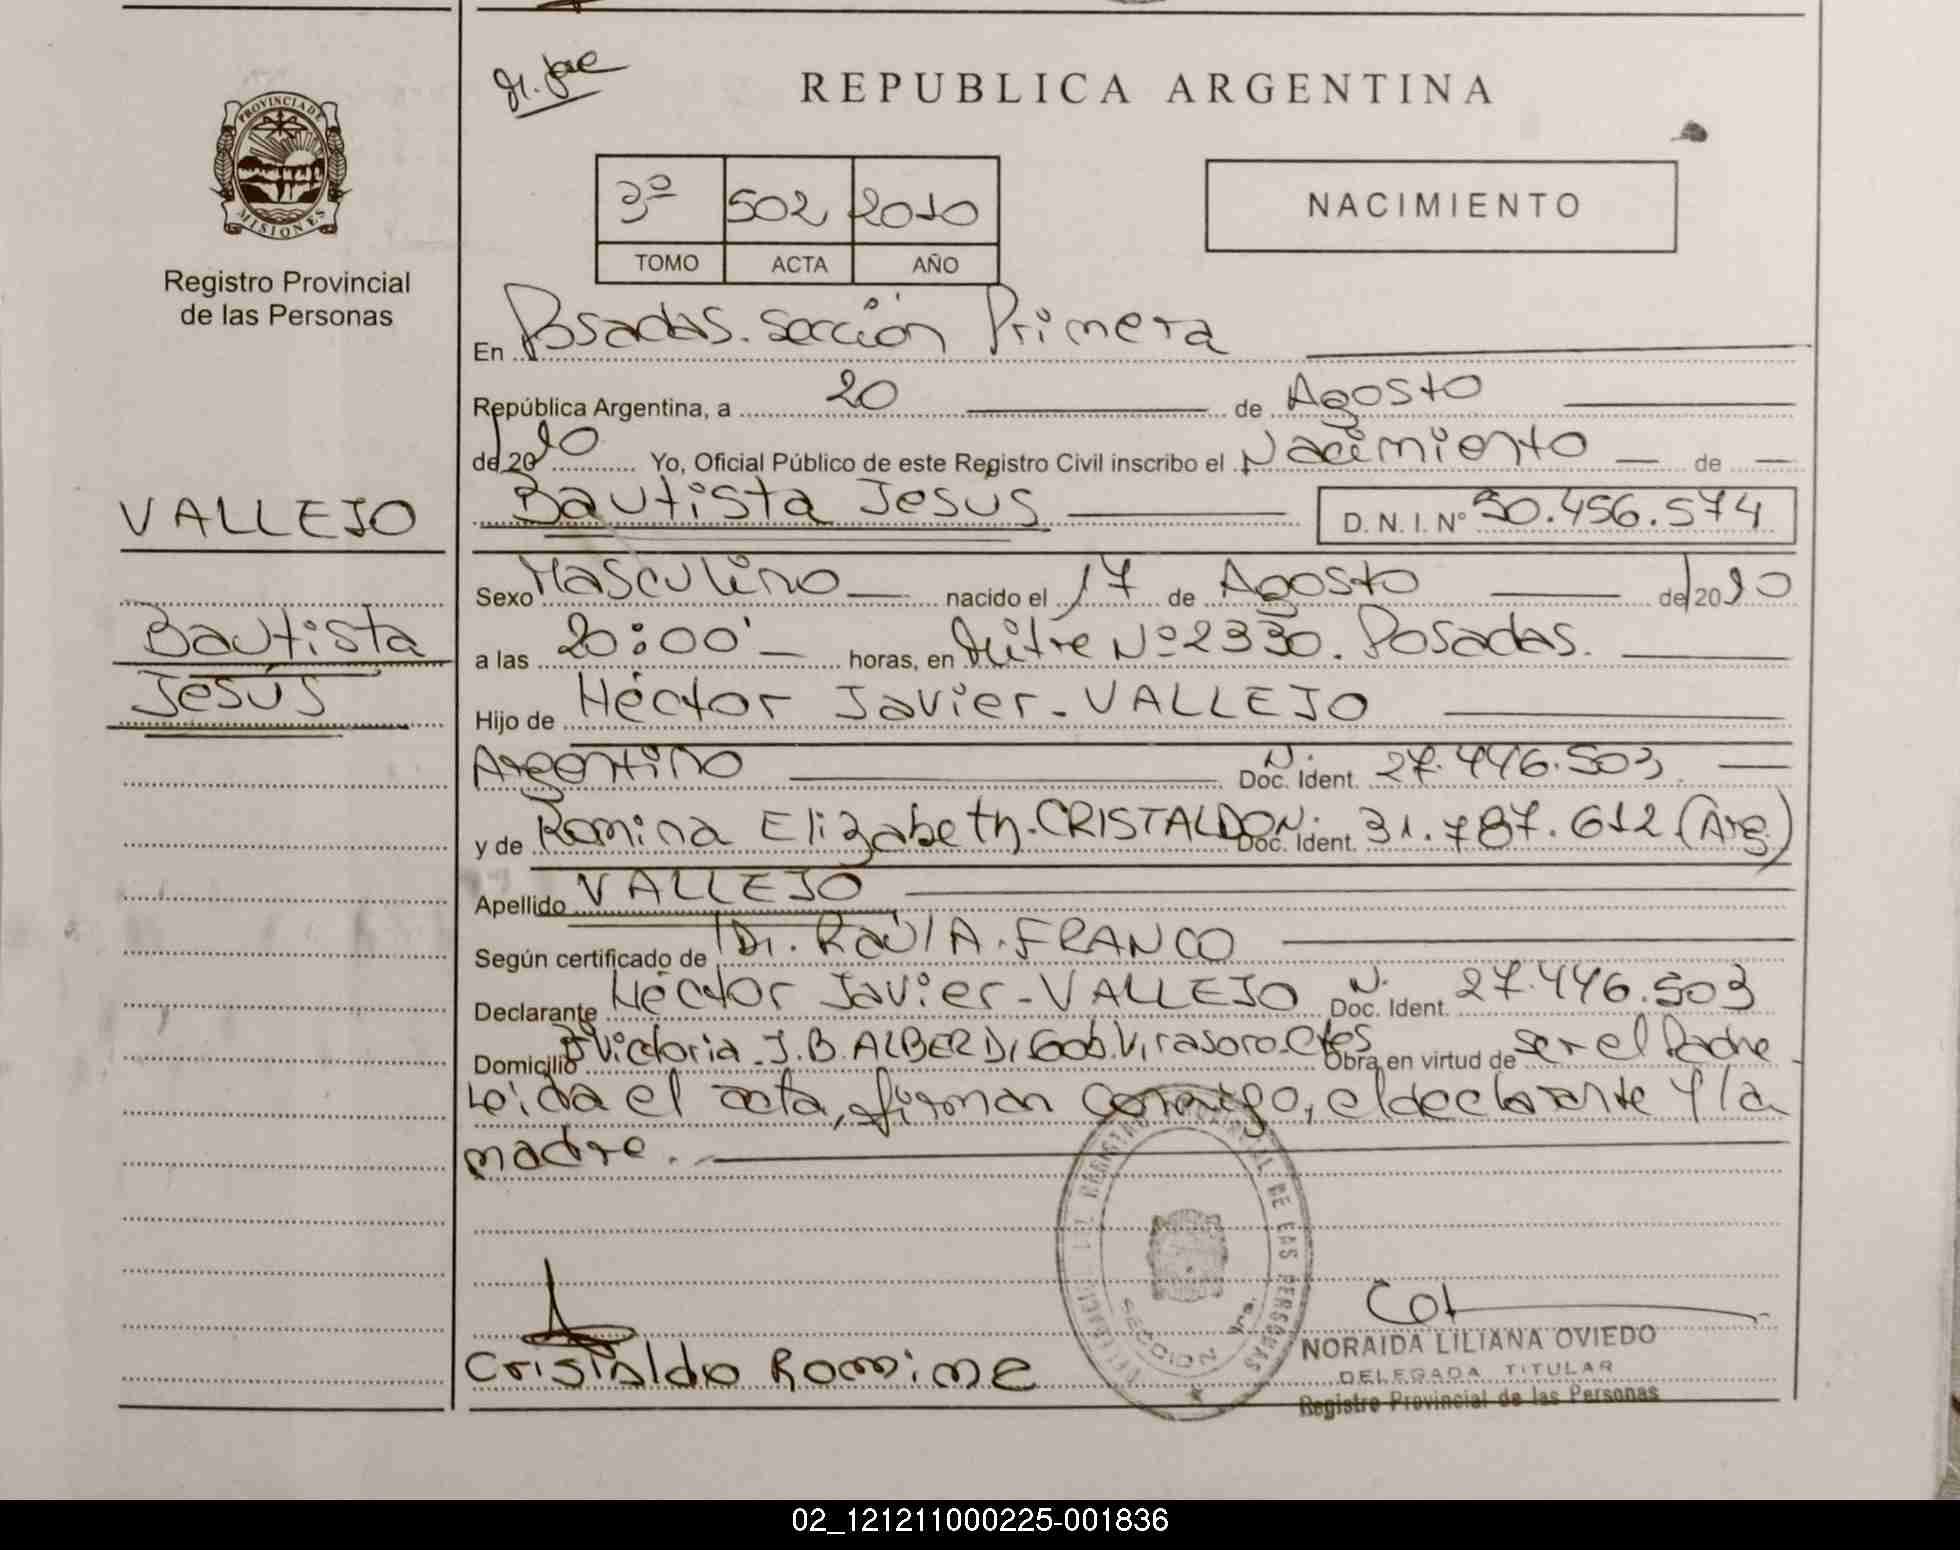 REPUBLICA ARGENTINA
PROVINCIA DE
MISIONES
Registro Provincial
de las Personas
3º 502 2010
TOMO ACTA AÑO
NACIMIENTO
En Posadas. Sección Primera
República Argentina, a 20 de Agosto
del 2010 Yo, Oficial Público de este Registro Civil inscribo el Nacimiento de
VALLEJO
Bautista Jesús D. N. I. Nº 50.456.574
Sexo Masculino nacido el 17 de Agosto del 2010
Bautista
a las 20:00' horas, en Mitre Nº 2330. Posadas.
Jesús
Hijo de Héctor Javier - VALLEJO
Argentino Doc. Ident. N. 27.446.503
y de Romina Elizabeth. CRISTALDO Doc. Ident. N. 31.787.612 (Arg.)
Apellido VALLEJO
Según certificado de Dr. Raúl A. FRANCO
Declarante Héctor Javier - VALLEJO Doc. Ident. N. 27.446.503
Domicilio Victoria - J.B. ALBERDI Gob. Virasoro - Ctes Obra en virtud de ser el Padre
Leida el acta, firman conmigo, el declarante y la
madre.
SECCION 1ra.
Cristaldo Romine
NORAIDA LILIANA OVIEDO
DELEGADA TITULAR
Registro Provincial de las Personas
02_121211000225-001836